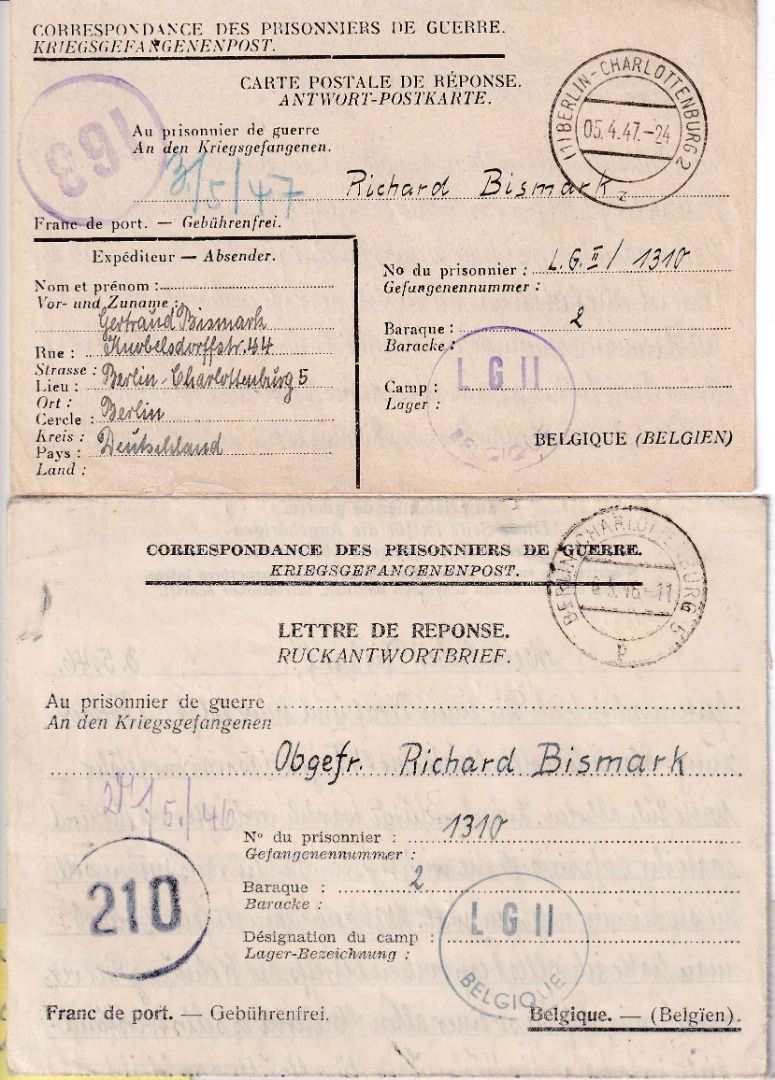 CORRESPONDANCE DES PRISONNIERS DE GUERRE.
KRIEGSGEFANGENENPOST.
CARTE POSTALE DE RÉPONSE.
ANTWORT-POSTKARTE.
(1) BERLIN-CHARLOTTENBURG 2
05.4.47.-24
z
163
Au prisonnier de guerre
An den Kriegsgefangenen.
3/5/47
Richard Bismark
Franc de port. — Gebührenfrei.
Expéditeur — Absender.
Nom et prénom :
Vor- und Zuname :
Gertraud Bismark
Rue : Knobelsdorffstr. 44
Strasse :
Lieu : Berlin-Charlottenburg 5
Ort :
Cercle : Berlin
Kreis :
Pays : Deutschland
Land :
No du prisonnier : L.G.II/1310
Gefangenennummer :
Baraque : 2
Baracke :
Camp :
Lager :
LG II
BELGIQUE
BELGIQUE (BELGIEN)
CORRESPONDANCE DES PRISONNIERS DE GUERRE.
KRIEGSGEFANGENENPOST.
BERLIN-CHARLOTTENBURG 5
LETTRE DE REPONSE.
RUCKANTWORTBRIEF.
3.5.46.
Au prisonnier de guerre
An den Kriegsgefangenen
Obgefr. Richard Bismark
/5/46
210
N° du prisonnier : 1310
Gefangenennummer :
Baraque : 2
Baracke :
Désignation du camp :
Lager-Bezeichnung :
LG II
BELGIQUE
Franc de port. — Gebührenfrei.
Belgique. — (Belgïen).